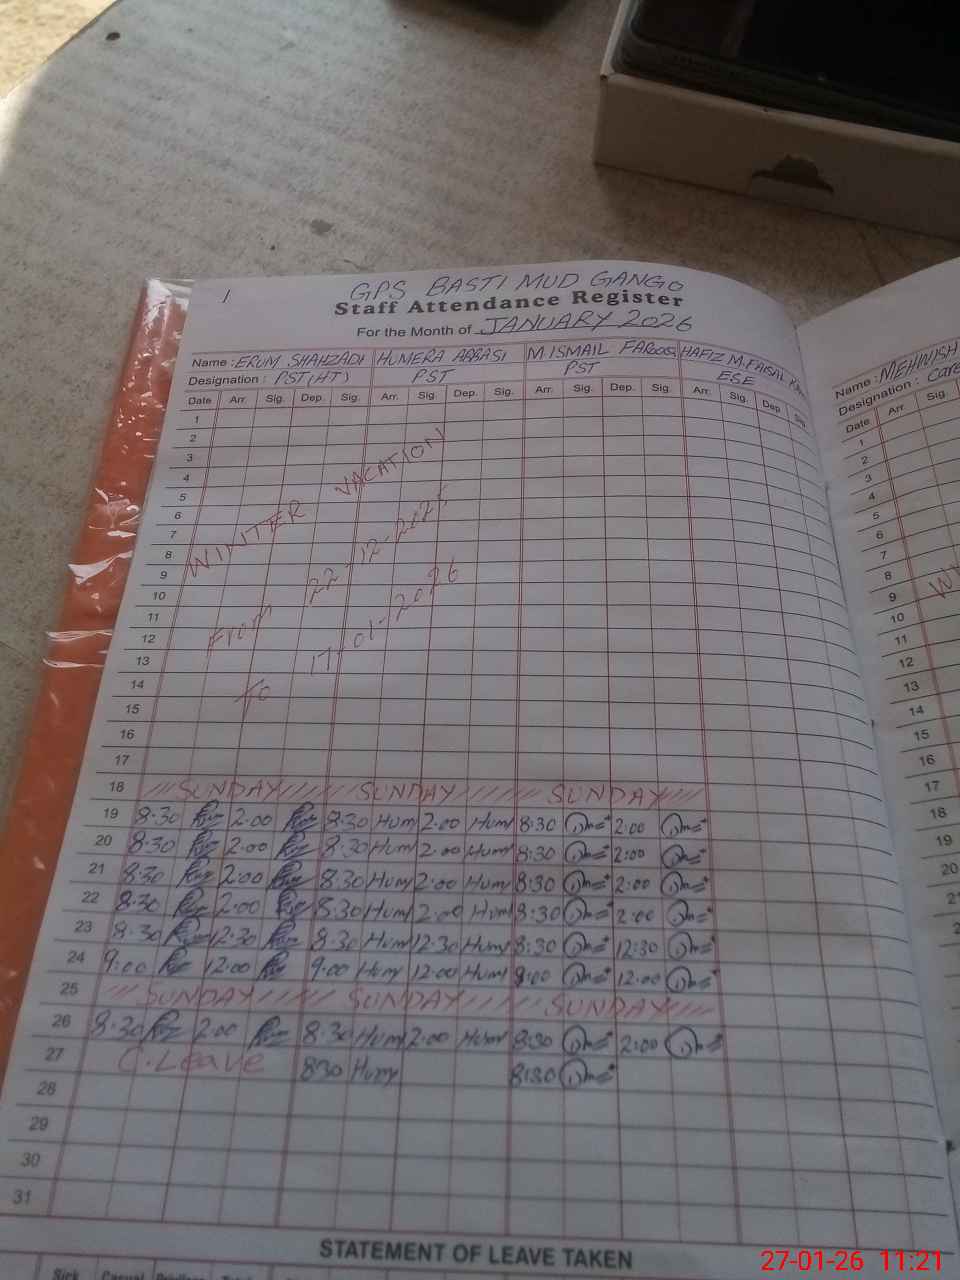 1
GPS BASTI MUD GANGO
Staff Attendance Register
For the Month of JANUARY 2026
Name : ERUM SHAHZADI HUMERA ABBASI M ISMAIL FAROOQ HAFIZ M. FAISAL
Designation : PST(HT) PST PST ESE
Date Arr. Sig. Dep. Sig. Arr. Sig. Dep. Sig. Arr. Sig. Dep. Sig. Arr. Sig. Dep. Sig.
1
2
3
4
5
6
7
8
9
10
11
12
13
14
15
16
17
WINTER VACATION
From 22-12-2025
To 17-01-2026
18 SUNDAY SUNDAY SUNDAY
19 8:30 2:00 8:30 Hum 2:00 Hum 8:30 2:00
20 8:30 2:00 8:30 Hum 2:00 Hum 8:30 2:00
21 8:30 2:00 8:30 Hum 2:00 Hum 8:30 2:00
22 8:30 2:00 8:30 Hum 2:00 Hum 8:30 2:00
23 8:30 12:30 8:30 Hum 12:30 Hum 8:30 12:30
24 9:00 12:00 9:00 Hum 12:00 Hum 9:00 12:00
25 SUNDAY SUNDAY SUNDAY
26 8:30 2:00 8:30 Hum 2:00 Hum 8:30 2:00
27 C.Leave 830 Hum 8:30
28
29
30
31
STATEMENT OF LEAVE TAKEN
Sick Casual
Name : MEHWISH
Designation : Care
Date Arr. Sig.
1
2
3
4
5
6
7
8
9
10
11
12
13
14
15
16
17
18
19
20
27-01-26 11:21